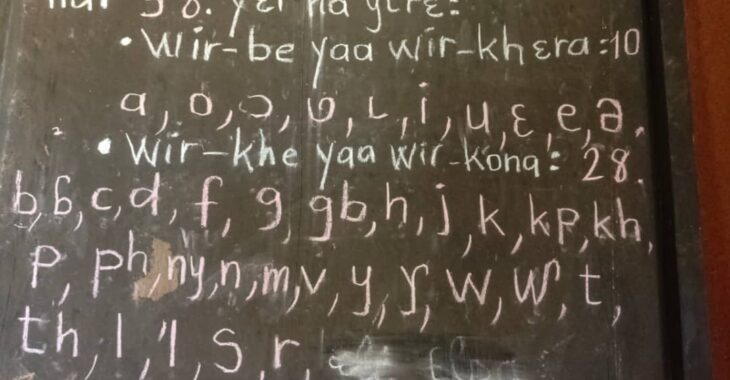 38.
• Wir-be yaa wir-khɛra:10
a, o, ɔ, ʋ, ɩ, i, u, ɛ, e, ə.
• Wir-khe yaa wir-kona: 28.
b, ɓ, c, d, f, g, gb, h, j, k, kp, kh,
p, ph, ny, n, m, v, y, ƴ, w, w', t,
th, l, 'l, s, r,